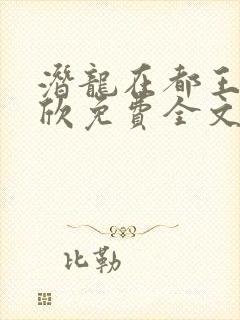 潛龍在都王
欣免費全文
比勒